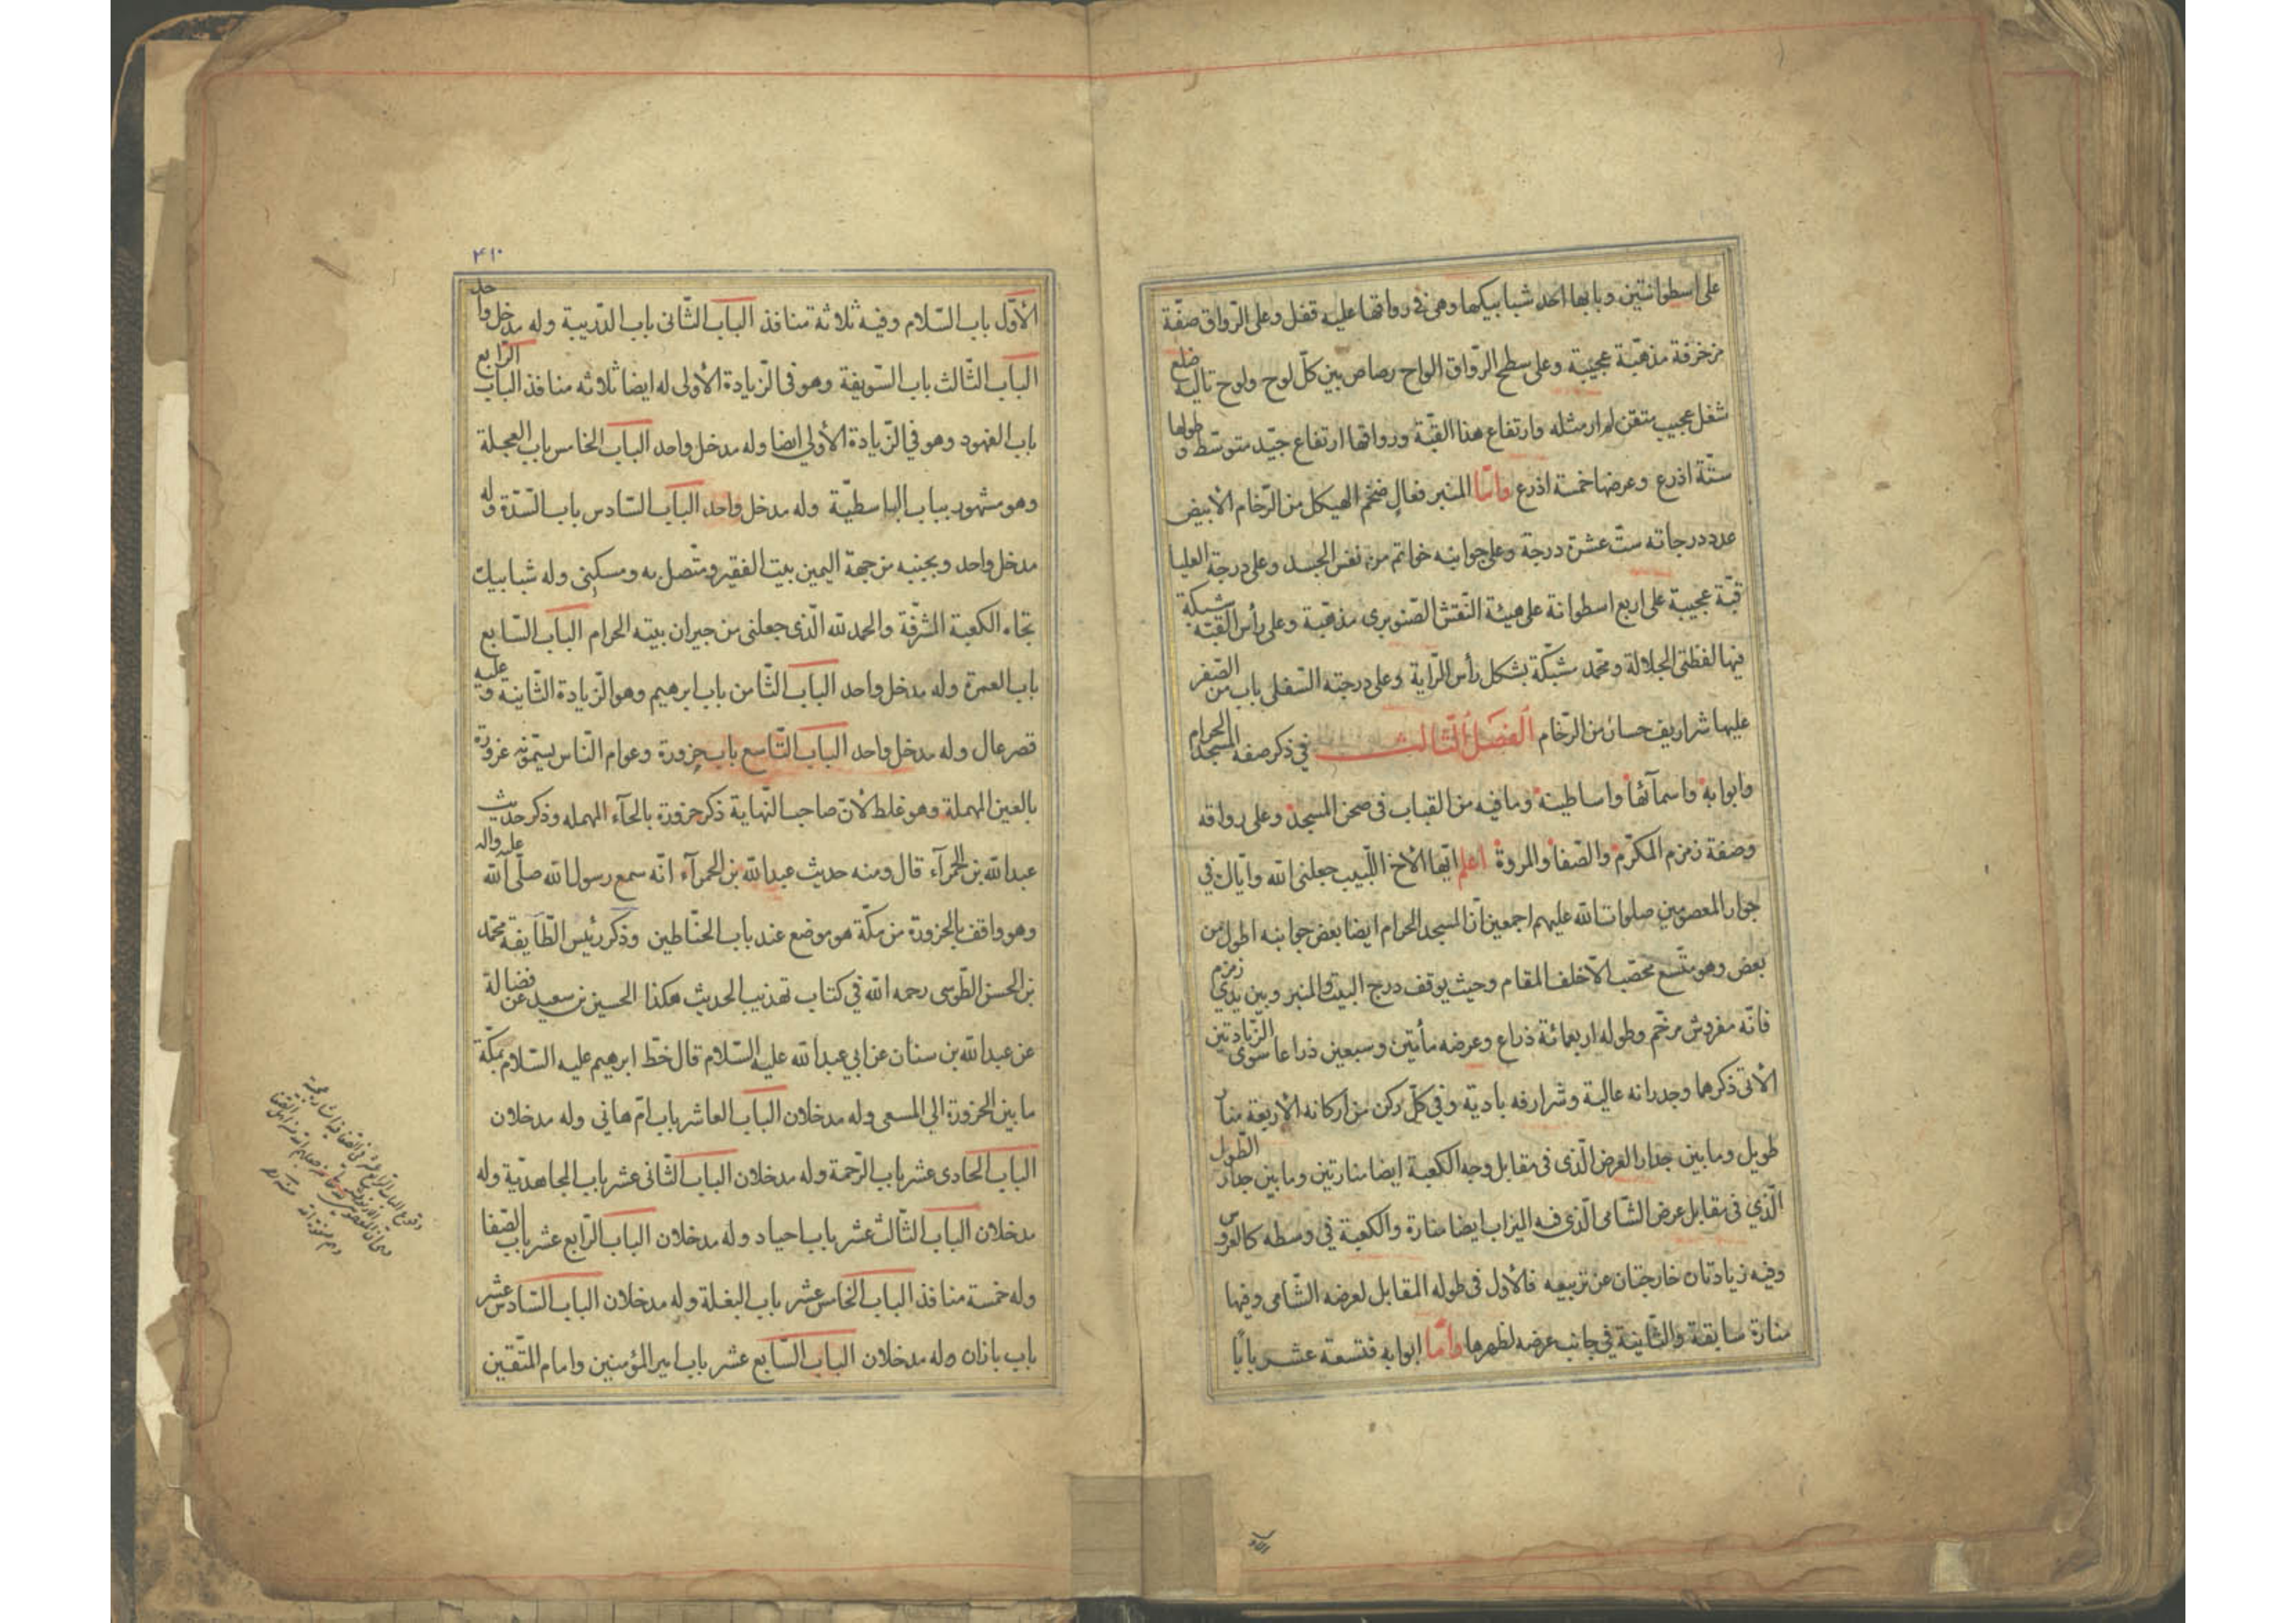 على اسطوانتين وبابها احد شبابيكها وهى فى رواقها عليه قفل وعلى الرّواق صفّة
مزخرفة مذهّبة عجيبة وعلى سطح الرّواق الواح رصاص بين كلّ لوح ولوح تاليه ضلع
شغل عجيب متقن لم ار مثله وارتفاع هذا القبّة ورواقها ارتفاع جيّد متوسّط وطولها
ستّة اذرع وعرضها خمسة اذرع وامّا المنبر فعالٍ ضخم الهيكل من الرّخام الابيض
عدد درجاته ستّ عشرة درجة وعلى جوانبه خواتم من نفس الجسد وعلى درجة العليا
قبّة عجيبة على اربع اسطوانة على هيئة النّقش الصّنوبرى مذهّبة وعلى رأس القبّه شبكة
فيها لفظتى الجلالة ومحمّد مشبّكة بشكل رأس الرّاية وعلى درجته السّفلى باب من الصّفر
عليها شراريف حسان من الرّخام الفصل الثّالث فى ذكر صفه المسجد الحرام
وابوابه واسمآئها واساطينه وما فيه من القباب فى صحن المسجد وعلى رواقه
وصفة زمزم المكرّم والصّفا والمروة اعلم ايّها الاخ اللّبيب جعلنى الله وايّاك فى
جوار المعصومين صلوات الله عليهم اجمعين انّ المسجد الحرام ايضا بعض جوانبه اطول من
بعض وهو متّسع محصّب الّا خلف المقام وحيث يوقف درج البيت والمنبر وبين يدى زمزم
فانّه مفروش مرخّم وطوله اربعمائة ذراع وعرضه مأتين وسبعين ذراعا سوى الزّيادتين
الآتى ذكرها وجدرانه عالية وشرارفه بادية وفى كلّ ركن من اركانه الاربعة منار
طويل وما بين جدار العرض الّذى فى مقابل وجه الكعبة ايضا منارتين وما بين جدار الطّول
الّذي فى مقابل عرض الشّامى الّذى فيه الميزاب ايضا منارة والكعبة فى وسطه كالعروس
وفيه زيادتان خارجتان عن تربيعه فالاول فى طوله المقابل لعرضه الشّامى وفيها
منارة سابقة والثّانية فى جانب عرضه لظهرها وامّا ابوابه فتسعة عشر بابًا
الاوّل
۴۱۰
الاوّل باب السّلام وفيه ثلاثة منافذ الباب الثّانى باب الدّريبة وله مدخل واحد
الباب الثّالث باب السّويقة وهو فى الزّيادة الأولى له ايضا ثلاثه منافذ الباب الرّابع
باب الفهود وهو فى الزّيادة الأولى ايضا وله مدخل واحد الباب الخامس باب العجلة
وهو مشهور بباب الباسطيّة وله مدخل واحد الباب السّادس باب السّدّة وله
مدخل واحد وبجنبه من جهة اليمين بيت الفقير ومتّصل به ومسكنى وله شبابيك
تجاه الكعبة المشرّفة والحمد لله الّذى جعلنى من جيران بيته الحرام الباب السّابع
باب العمرة وله مدخل واحد الباب الثّامن باب ابرهيم وهو الزّيادة الثّانيه وعليه
قصر عال وله مدخل واحد الباب التّاسع باب حزورة وعوام النّاس يسمّونه عزورة
بالعين المهملة وهو غلط لانّ صاحب النّهاية ذكر حزورة بالحآء المهمله وذكر حديث
عبد الله بن الحمرآء قال ومنه حديث عبد الله بن الحمرآء انّه سمع رسول الله صلّى الله عليه واله
وهو واقف بالحزورة من مكّة هو موضع عند باب الحنّاطين وذكر رئيس الطّآيفة محمّد
بن الحسن الطّوسى رحمه الله فى كتاب تهذيب الحديث هكذا الحسين بن سعيد عن فضالة
عن عبد الله بن سنان عن ابي عبد الله عليه السّلام قال خطّ ابرهيم عليه السّلام بمكّة
ما بين الحزورة الى المسعى وله مدخلان الباب العاشر باب امّ هانى وله مدخلان
الباب الحادى عشر باب الرّحمة وله مدخلان الباب الثّانى عشر باب المجاهديّة وله
مدخلان الباب الثّالث عشر باب اجياد وله مدخلان الباب الرّابع عشر باب الصّفا
وله خمسة منافذ الباب الخامس عشر باب البغلة وله مدخلان الباب السّادس عشر
باب بازان وله مدخلان الباب السّابع عشر باب امير المؤمنين وامام المتّقين